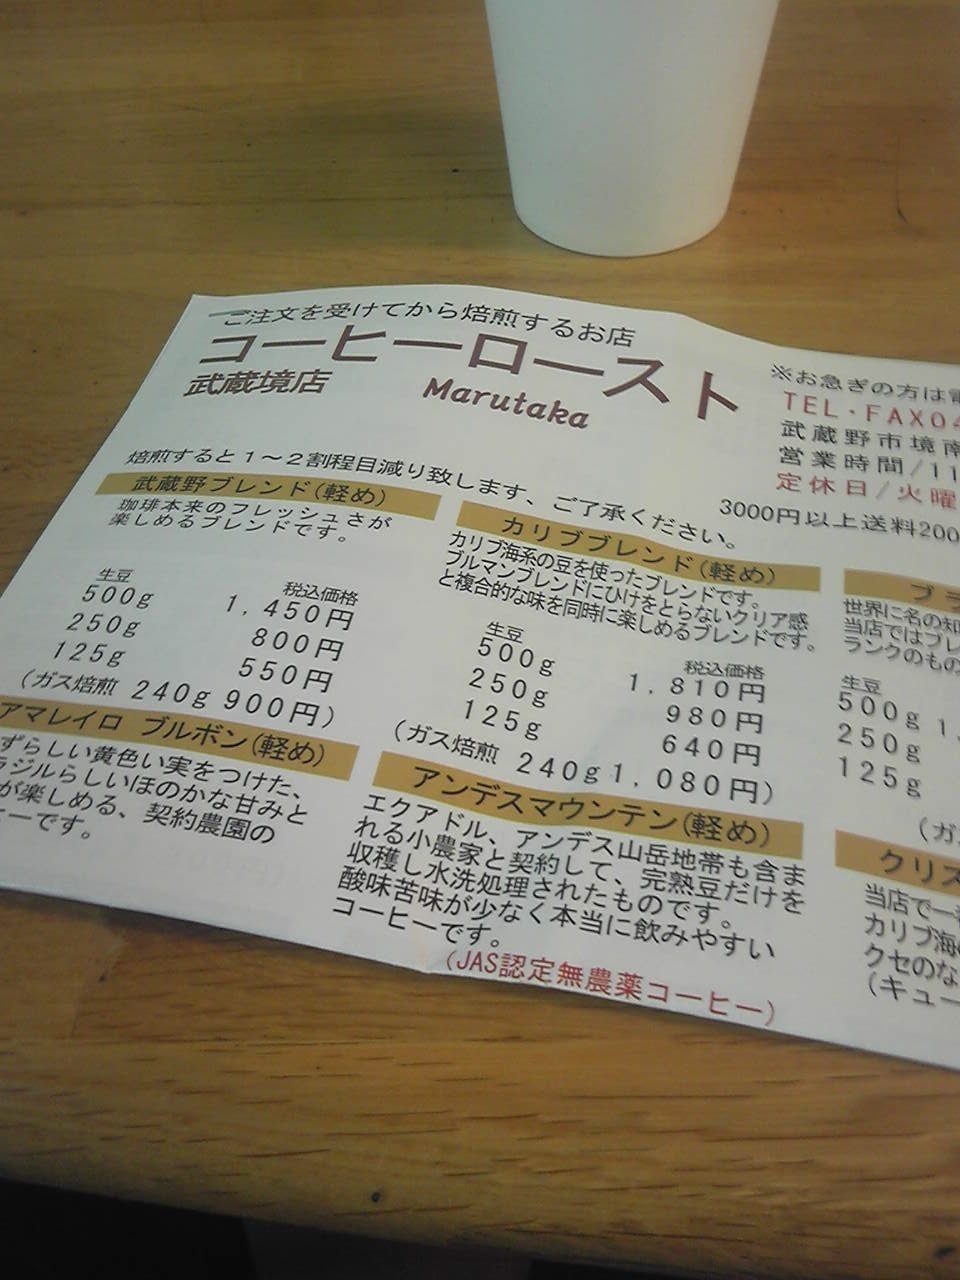 ご注文を受けてから焙煎するお店
コーヒーロースト
武蔵境店
Marutaka
※お急ぎの方は電
TEL・FAX04
武蔵野市境南
営業時間/11
定休日/火曜
3000円以上送料200
焙煎すると1～2割程目減り致します、ご了承ください。
武蔵野ブレンド(軽め)
珈琲本来のフレッシュさが
楽しめるブレンドです。
生豆 税込価格
500g 1,450円
250g 800円
125g 550円
(ガス焙煎 240g 900円)
カリブブレンド(軽め)
カリブ海系の豆を使ったブレンドです。
ブルマンブレンドにひけをとらないクリア感
と複合的な味を同時に楽しめるブレンドです。
生豆 税込価格
500g 1,810円
250g 980円
125g 640円
(ガス焙煎 240g 1,080円)
ブラ
世界に名の知
当店ではブレ
ランクのもの
生豆
500g 1,
250g
125g
(ガ
アマレイロ ブルボン(軽め)
ずらしい黄色い実をつけた、
ラジルらしいほのかな甘みと
が楽しめる、契約農園の
ーヒーです。
アンデスマウンテン(軽め)
エクアドル、アンデス山岳地帯も含ま
れる小農家と契約して、完熟豆だけを
収穫し水洗処理されたものです。
酸味苦味が少なく本当に飲みやすい
コーヒーです。
(JAS認定無農薬コーヒー)
クリス
当店で一番
カリブ海の
クセのな
(キュー